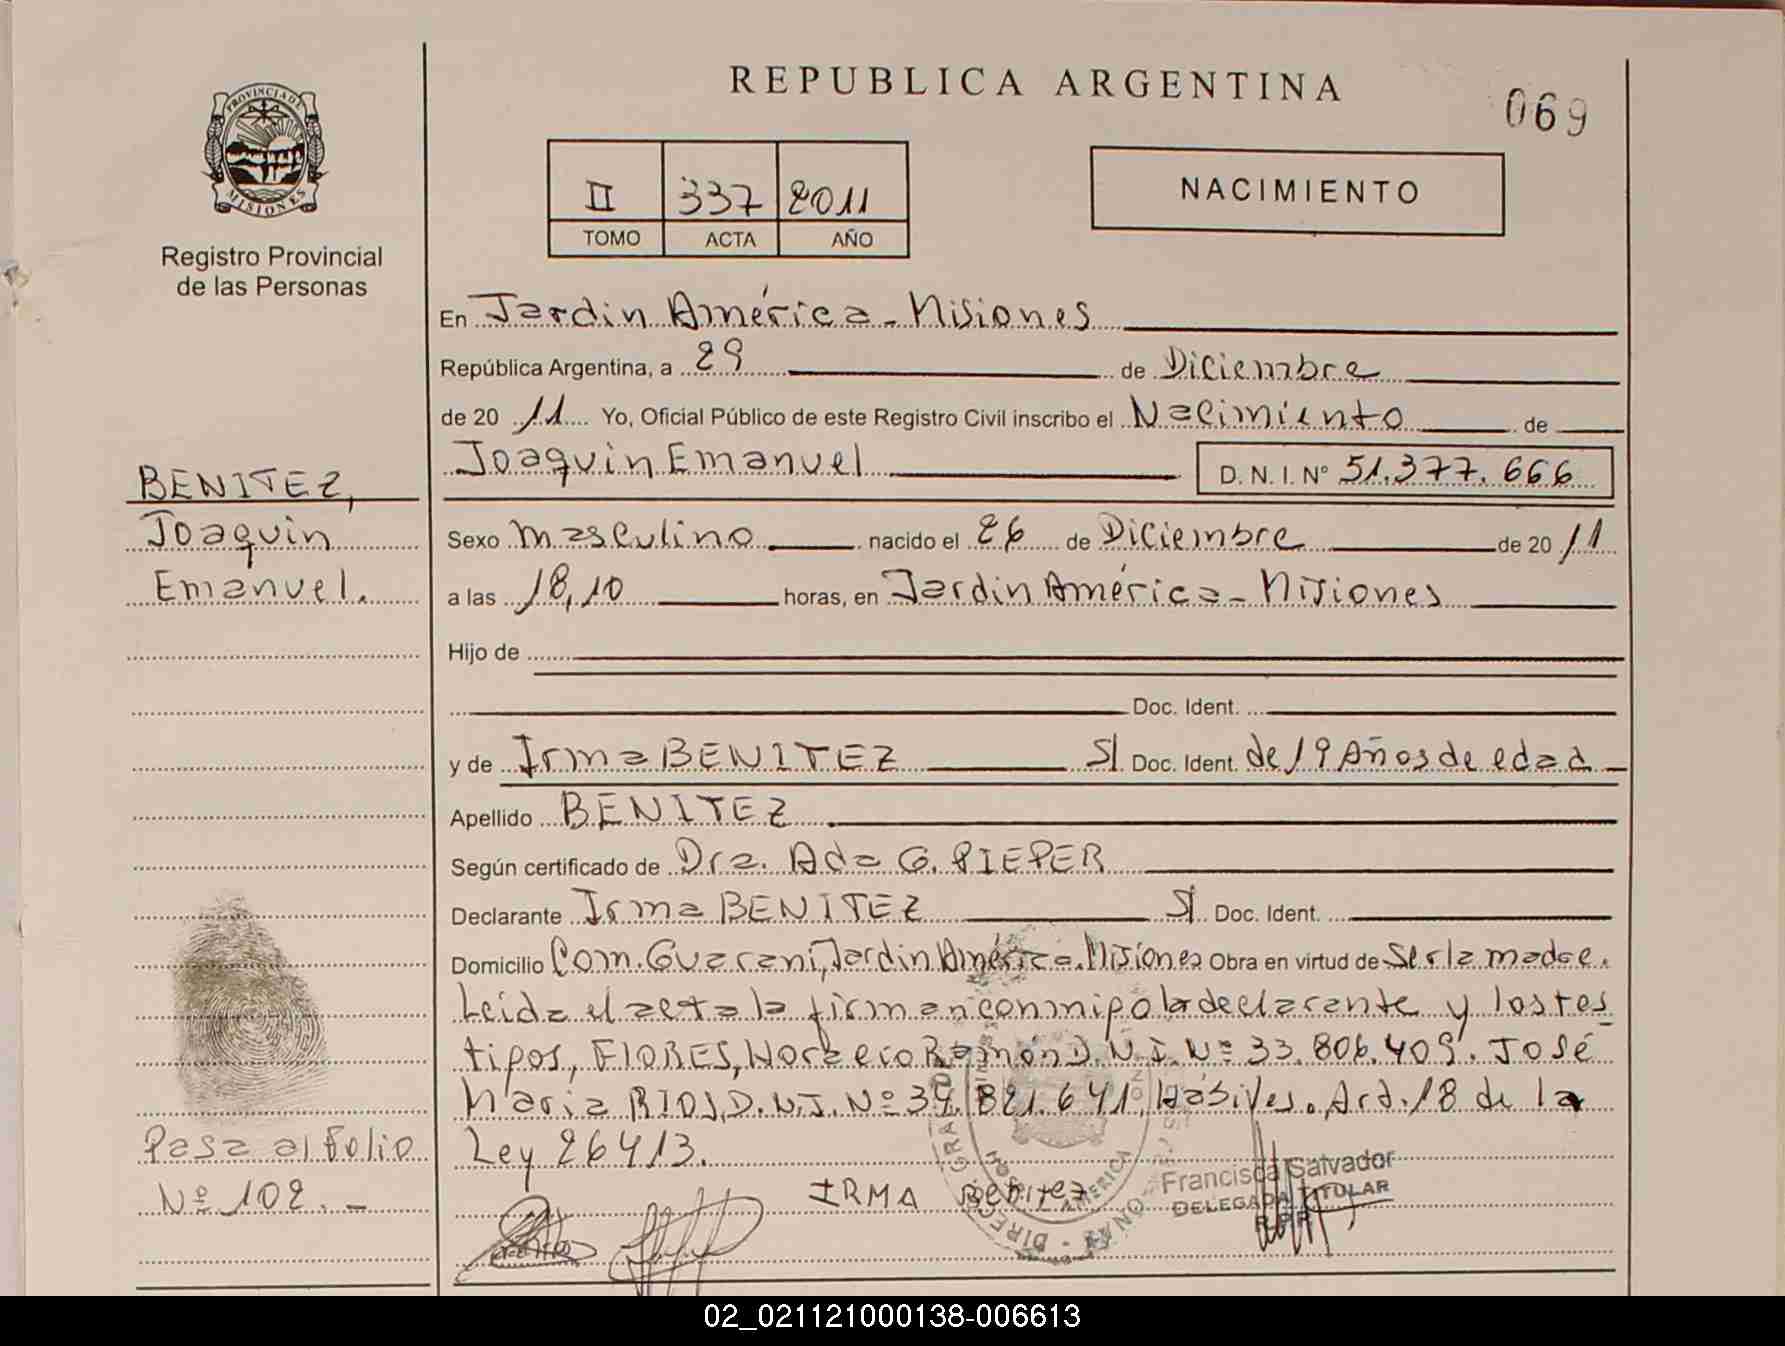 REPUBLICA ARGENTINA
069
PROVINCIA DE
MISIONES
Registro Provincial
de las Personas
II 337 2011
TOMO ACTA AÑO
NACIMIENTO
En Jardin América - Misiones
República Argentina, a 29 de Diciembre
de 20 11 Yo, Oficial Público de este Registro Civil inscribo el Nacimiento de
Joaquin Emanuel D. N. I. Nº 51.377.666
BENITEZ,
Joaquin
Emanuel.
Sexo masculino nacido el 26 de Diciembre de 20 11
a las 18,10 horas, en Jardin América - Misiones
Hijo de
Doc. Ident.
y de Irma BENITEZ S/ Doc. Ident. de 19 Años de edad
Apellido BENITEZ
Según certificado de Dra. Ada G. PIEPER
Declarante Irma BENITEZ S/ Doc. Ident.
Domicilio Com. Guarani, Jardin América. Misiones Obra en virtud de Ser la madre.
Leida el acta la firman conmipo la declarante y los tes
tipos, FLORES, Horacio Ramón D.N.I. Nº 33.806.409. José
Maria RIOS, D.N.I. Nº 34.821.641, Hábiles. Art. 18 de la
Ley 26413.
Pasa al Folio
Nº 102. -
IRMA Benitez
AMERICA
Francisca Salvador
DELEGADA TITULAR
R.P.P.
02_021121000138-006613